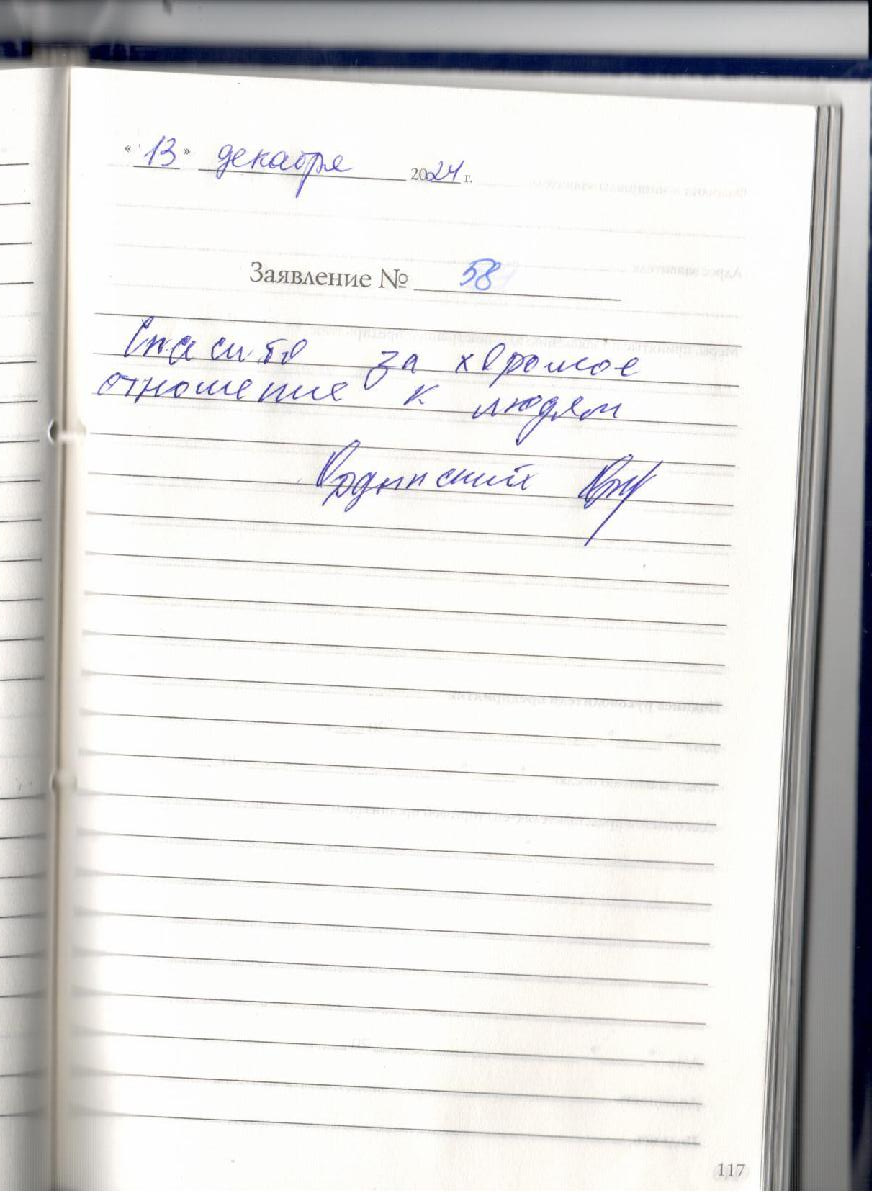 « 13 » декабря 2024 г.
Заявление № 58
Спасибо за хорошое
отношение к людям
117